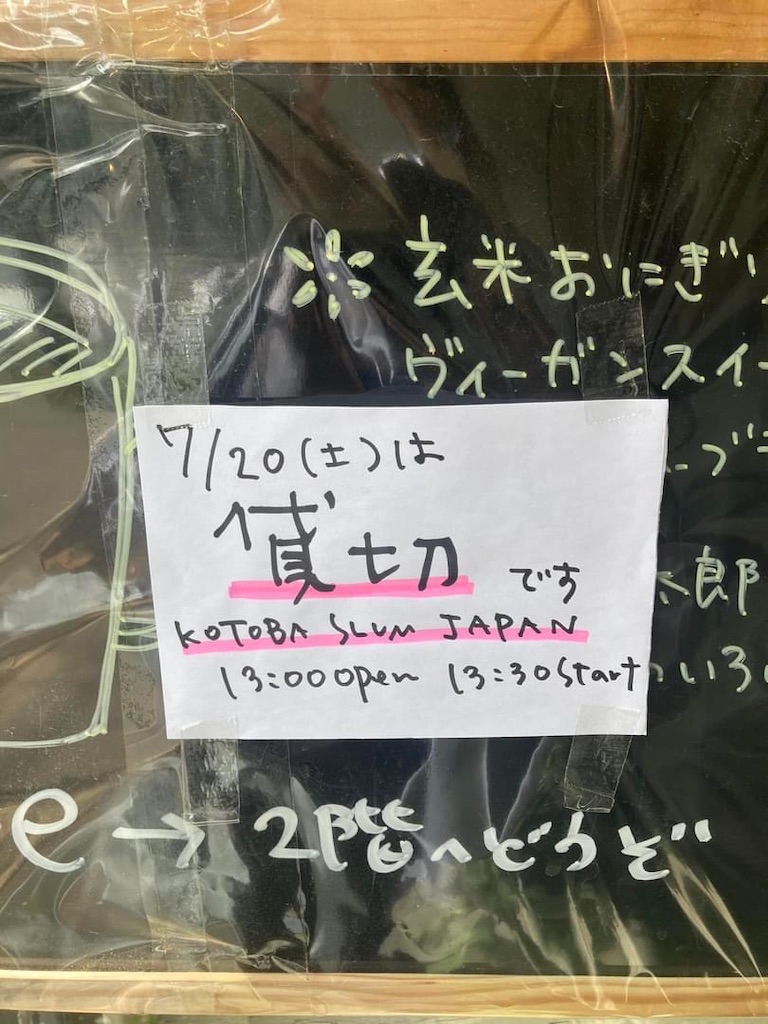 ※ 玄米おにぎり
ヴィーガンスイー
ーブ
7/20(土)は
貸切です
KOTOBA SLUM JAPAN
13:00 Open 13:30 Start
太郎
いろ
e → 2階へどうぞ